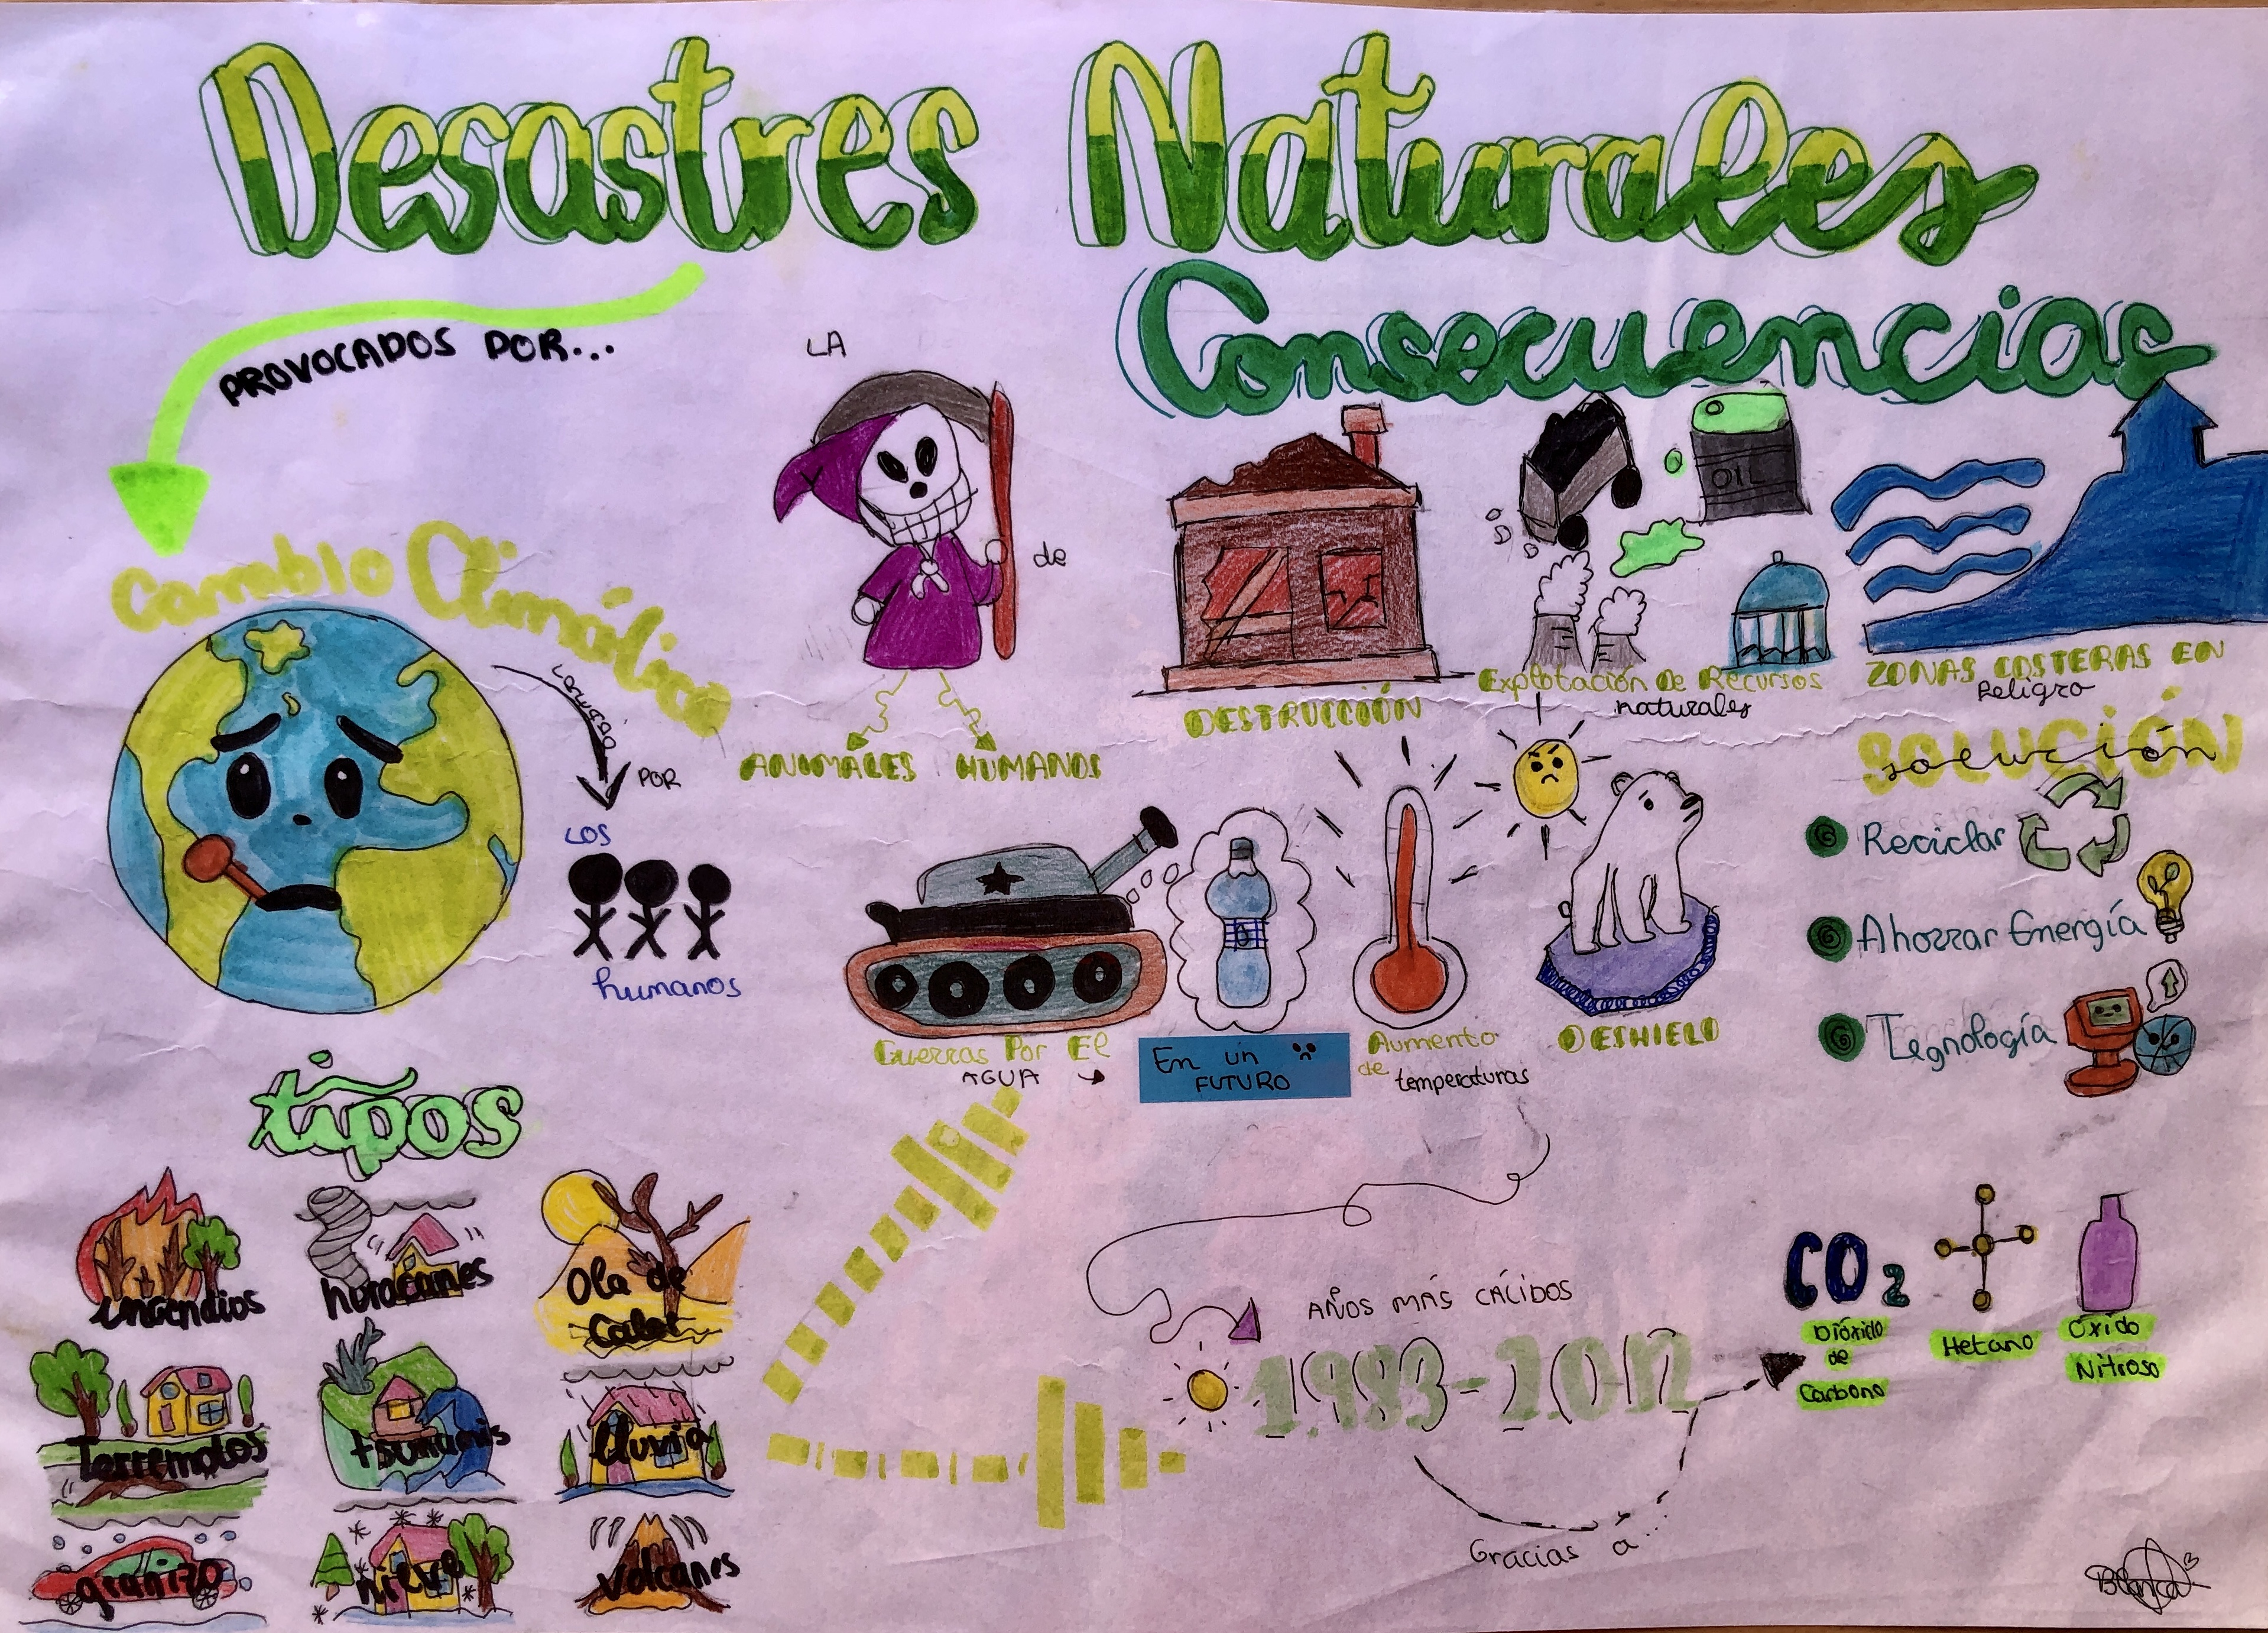 Desastres Naturales
Consecuencias
PROVOCADOS POR...
Cambio Climático
causado
POR
LOS
humanos
LA
de
ANIMALES HUMANOS
DESTRUCCIÓN
OIL
Explotación De Recursos
naturales
ZONAS COSTERAS EN
Peligro
Guerras Por El
AGUA
En un
FUTURO
Aumento
de temperaturas
DESHIELO
SOLUCIÓN
solución
Reciclar
Ahorrar Energía
Tegnología
tipos
incendios
huracanes
Ola de
Calor
Terremotos
tsunamis
lluvia
granizo
nieve
volcanes
AÑOS MÁS CÁLIDOS
1.983-2.012
Gracias a...
CO2
Dióxido
de
Carbono
Metano
Óxido
Nitroso
Blanca